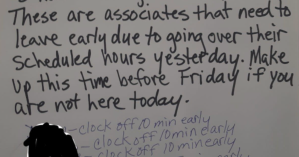 These are associates that need to
leave early due to going over their
scheduled hours yesterday. Make
up this time before Friday if you
are not here today.
clock off 10 min early
clock off 10 min early
clock off 10 min early